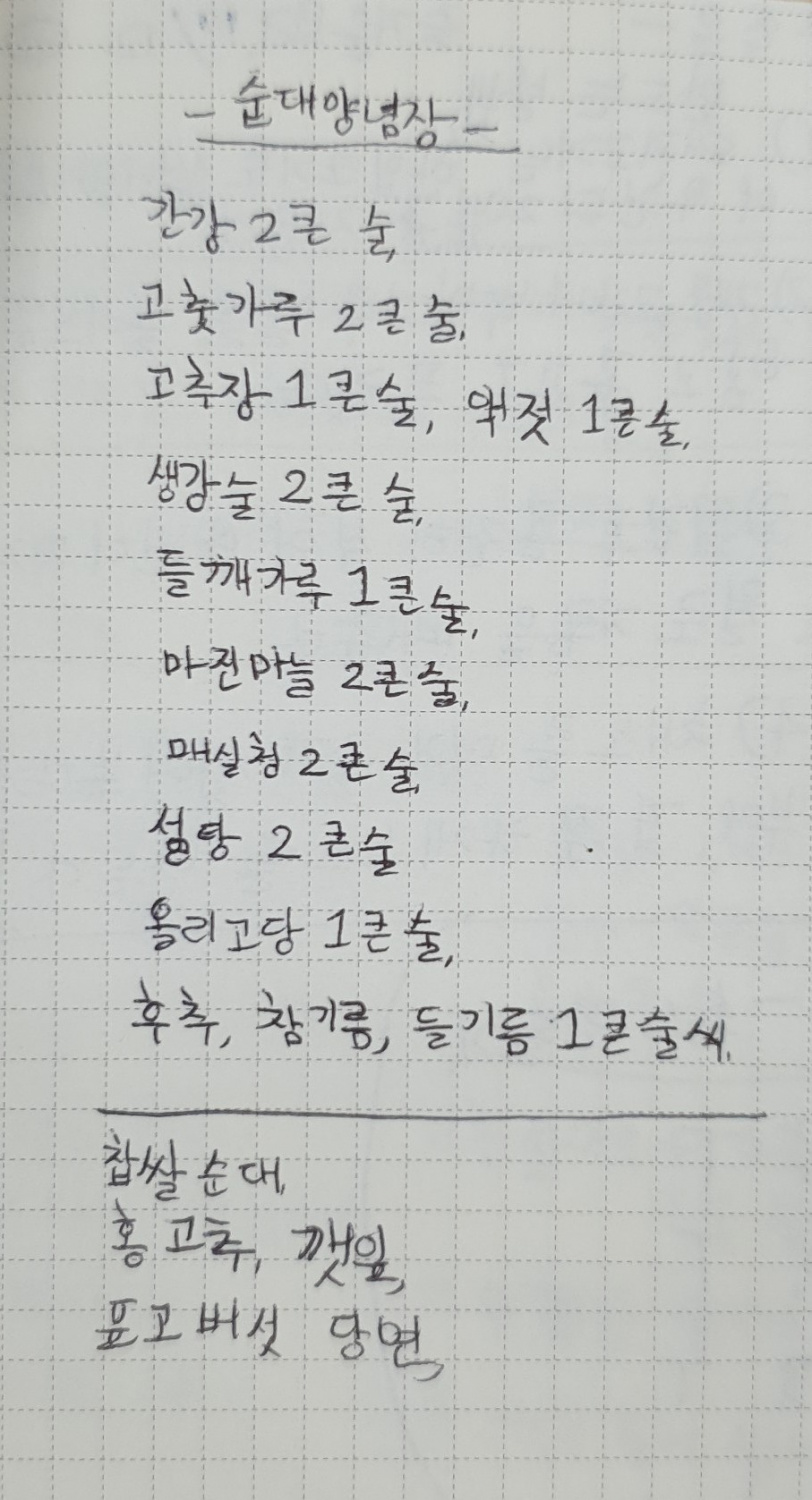 - 순대양념장 -
간장 2큰 술,
고춧가루 2큰술,
고추장 1큰술, 액젓 1큰술,
생강술 2큰 술,
들깨가루 1큰술,
마진마늘 2큰술,
매실청 2큰술,
설탕 2큰술
올리고당 1큰술,
후추, 참기름, 들기름 1큰술씩.
찹쌀순대,
홍고추, 깻잎,
표고버섯 당면,